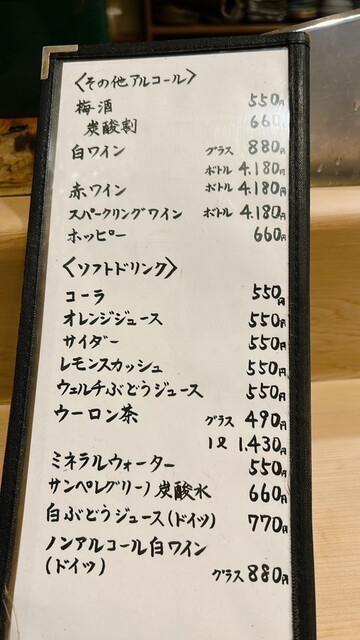 〈その他アルコール〉
梅酒 550円
炭酸割 660円
白ワイン グラス 880円
ボトル 4.180円
赤ワイン ボトル 4.180円
スパークリングワイン ボトル 4.180円
ホッピー 660円
〈ソフトドリンク〉
コーラ 550円
オレンジジュース 550円
サイダー 550円
レモンスカッシュ 550円
ウェルチぶどうジュース 550円
ウーロン茶 グラス 490円
1ℓ 1.430円
ミネラルウォーター 550円
サンペレグリーノ炭酸水 660円
白ぶどうジュース(ドイツ) 770円
ノンアルコール白ワイン
(ドイツ) グラス 880円